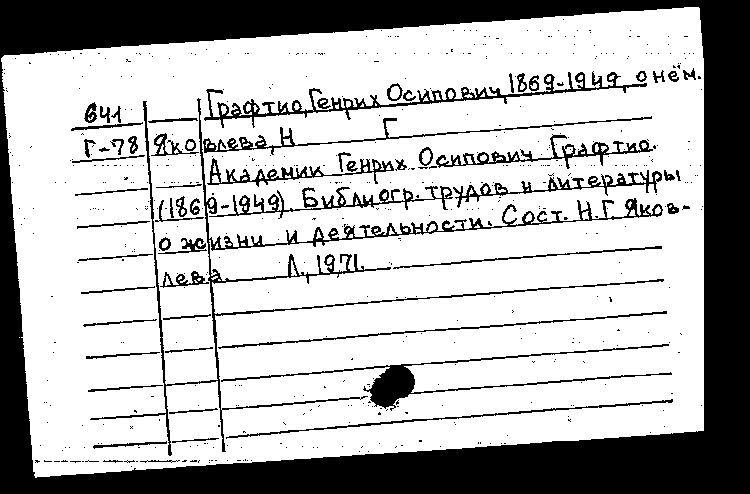 641 Графтио, Генрих Осипович, 1869-1949, о нём.
Г-78 Яковлева, Н Г
Академик Генрих Осипович Графтио.
(1869-1949). Библиогр. трудов и литературы
о жизни и деятельности. Сост. Н.Г. Яков-
лева. Л., 1971.